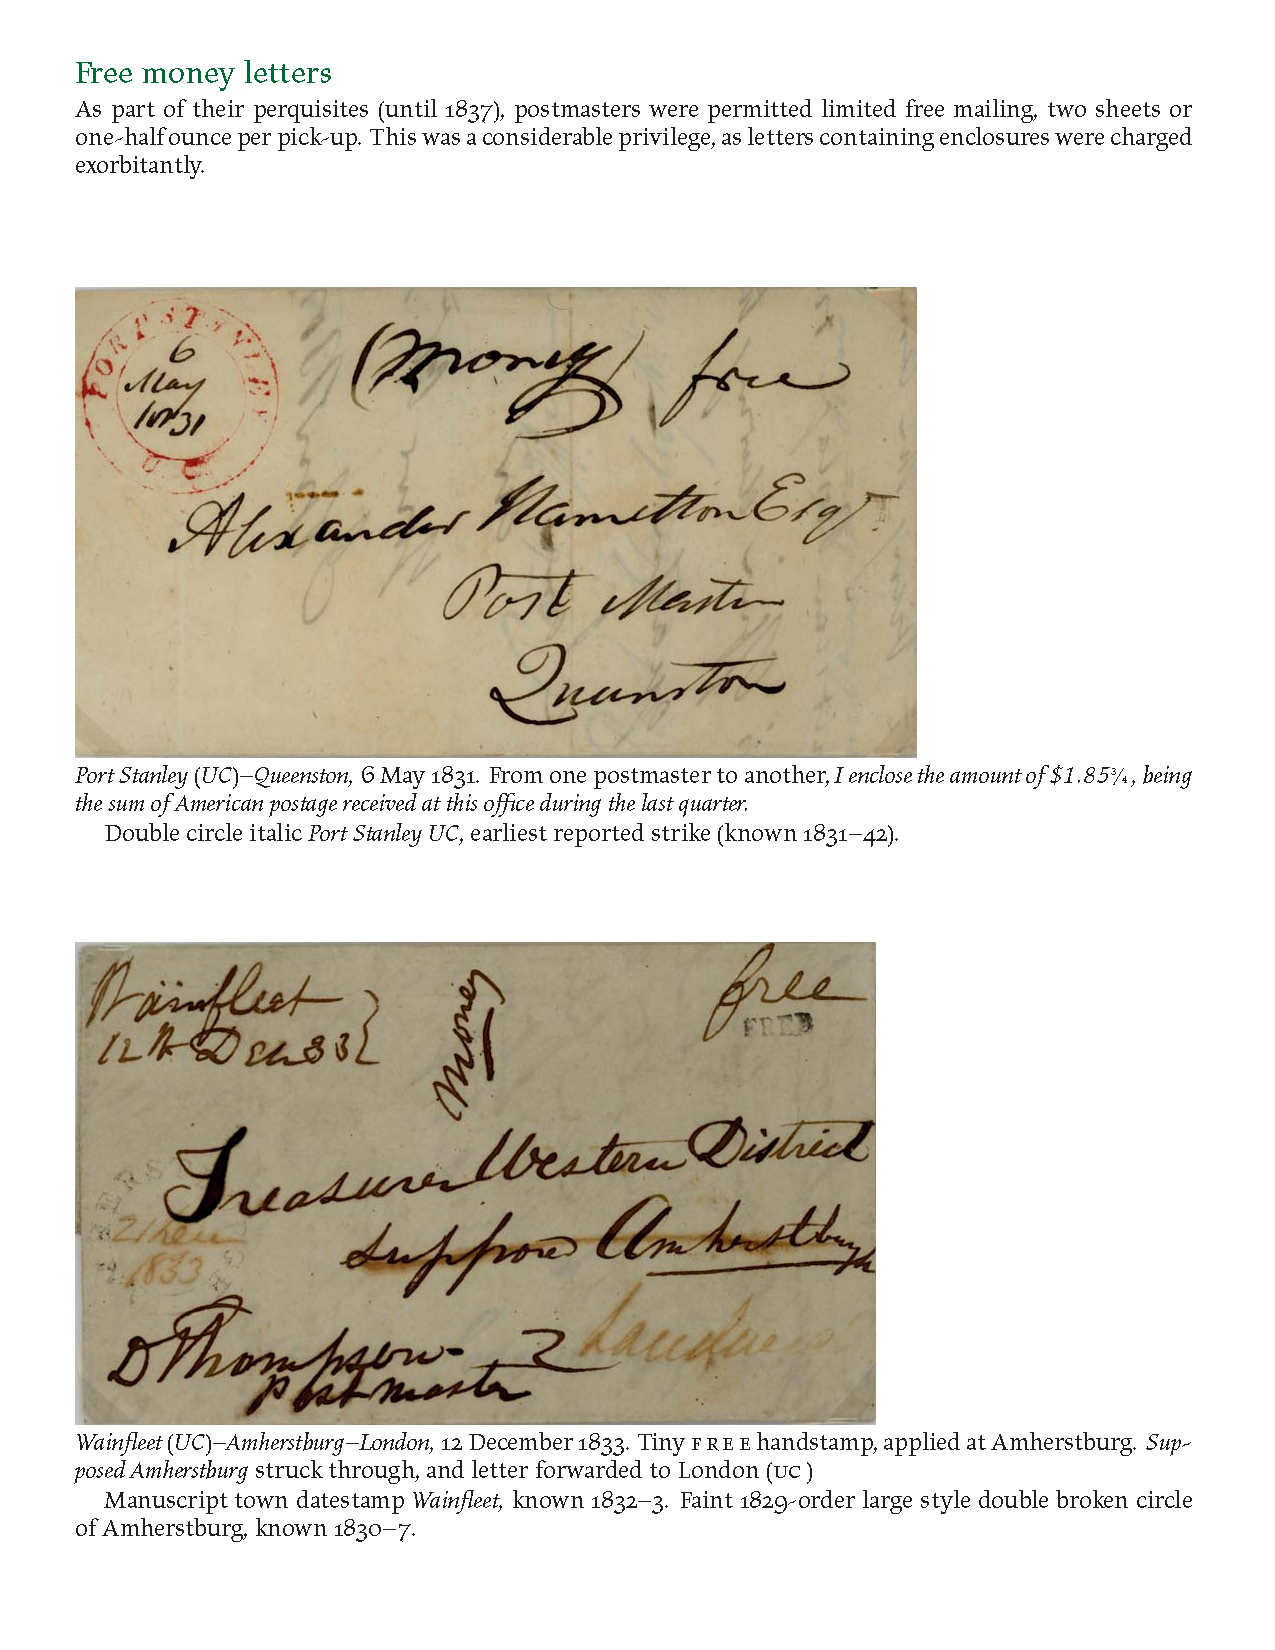 Free money letters
As part of their perquisites (until 1837), postmasters were permitted limited free mailing, two sheets or
one-half ounce per pick-up. This was a considerable privilege, as letters containing enclosures were charged
exorbitantly.
PORT STANLEY
6
May
1831
U C
(Money) free
Alexander Hamelton Esqr.
Post Master
Queenston
Port Stanley (UC)–Queenston, 6 May 1831. From one postmaster to another, I enclose the amount of $1.85¾, being
the sum of American postage received at this office during the last quarter.
Double circle italic Port Stanley UC, earliest reported strike (known 1831–42).
Wainfleet
12th Dec 33
Money
free
FREE
Treasurer Western District
supposed Amherstburgh
1833
D Thompson
Postmaster
Wainfleet (UC)–Amherstburg–London, 12 December 1833. Tiny FREE handstamp, applied at Amherstburg. Sup-
posed Amherstburg struck through, and letter forwarded to London (UC )
Manuscript town datestamp Wainfleet, known 1832–3. Faint 1829-order large style double broken circle
of Amherstburg, known 1830–7.